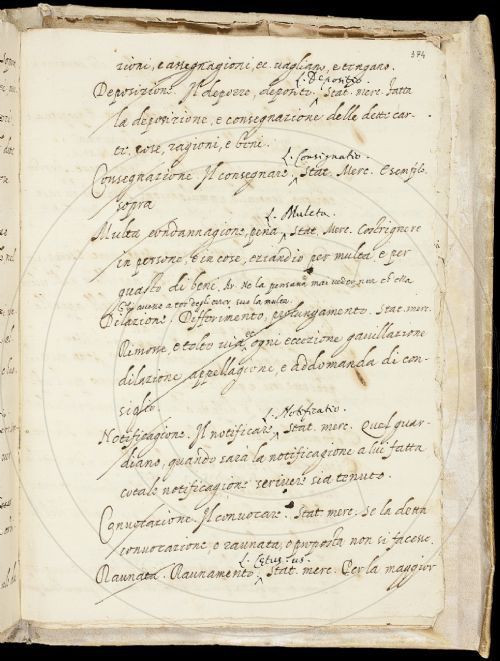 374
zioni, e assegnagioni, ec vagliano, e tengano.
L. Depositio.
Deposizione. Il deporre, deposito. Stat. merc. fatta
la deposizione, e consegnazione delle dette car-
te, cose, ragioni, e beni.
L. Consignatio.
Consegnazione Il consegnare. Stat. Merc. Esemp. lo.
sopra
L. Mulcta.
Multa condannagione, pena. Stat. Merc. Costrignere
in persone, e in cose, eziandio per multa, e per
guasto di beni. Ar. Ne la pensand mai veder ch ella
de suoi error, sua la multa.
Dilazione Differimento, prolungamento. Stat. merc.
Rimosse, e tolto via ogni eccezione gavillazione
dilazione appellagione, e addomanda di con-
siglio.
L. Notificatio.
Notificagione. Il notificare, Stat. merc. Quel guar-
diano, quando sarà la notificagione a lui fatta
cotale notificagione scrivere sia tenuto.
Convocazione Il convocare. Stat merc. Se la detta
convocazione, e raunata, e proposta non si facesse.
L. Cetus, us.
Raunata. Raunamento. Stat. merc. Per la maggior